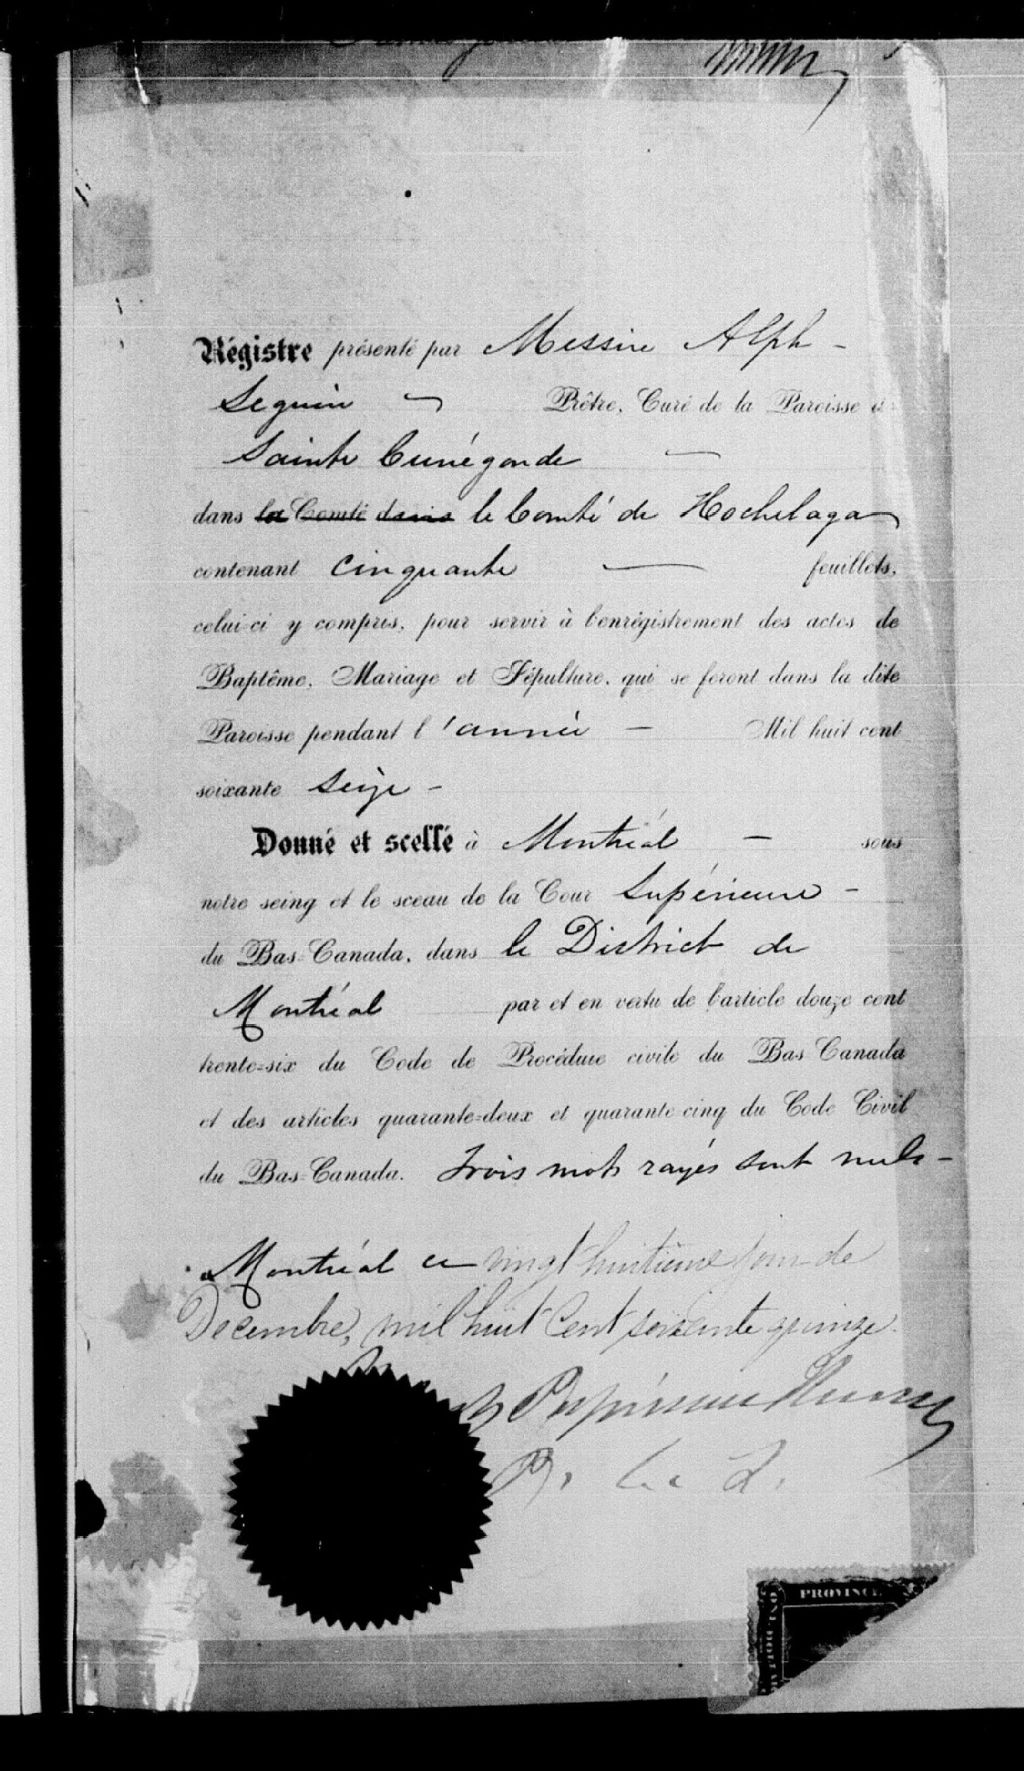 Régistre présenté par Messire Alph -
Seguin Prêtre, Curé de la Paroisse de
Sainte Cunégonde —
dans la Comté dans le Comté de Hochelaga
contenant cinquante — feuillets,
celui-ci y compris, pour servir à l'enrégistrement des actes de
Baptême, Mariage et Sépulture, qui se feront dans la dite
Paroisse pendant l'année — Mil huit cent
soixante seize -
Donné et scellé à Montréal — sous
notre seing et le sceau de la Cour Supérieure -
du Bas-Canada, dans le District de
Montréal par et en vertu de l'article douze cent
trente-six du Code de Procédure civile du Bas Canada
et des articles quarante-deux et quarante-cinq du Code Civil
du Bas-Canada. Trois mots rayés sont nuls -
Montréal ce vingt huitième jour de
Decembre, mil huit Cent soixante quinze.
Papineau
PROVINCE